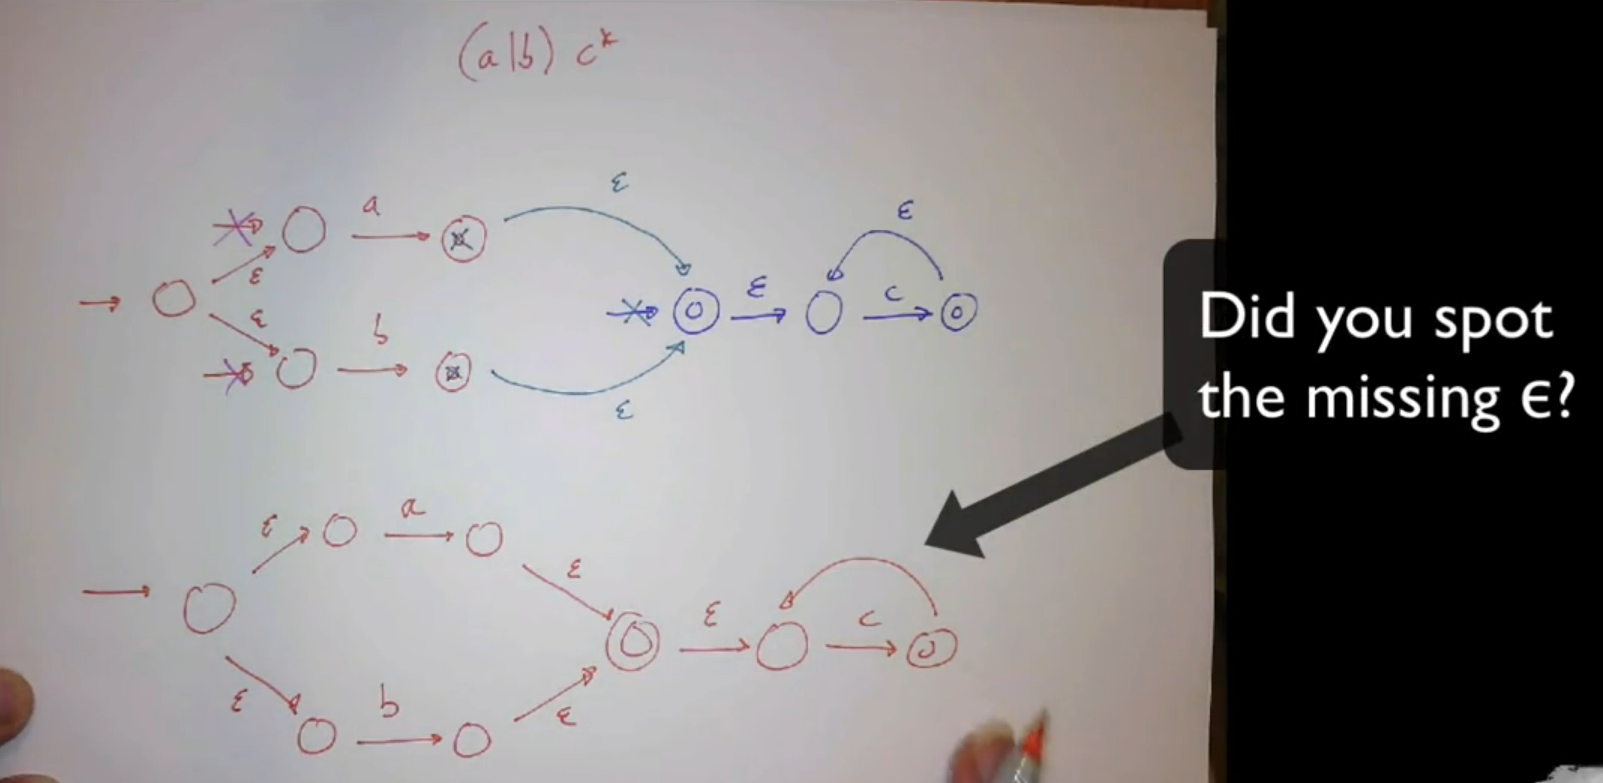 (a|b) c*
ε
ε
a
ε
ε
c
ε
b
ε
Did you spot
the missing ϵ?
a
ε
ε
ε
c
ε
b
ε